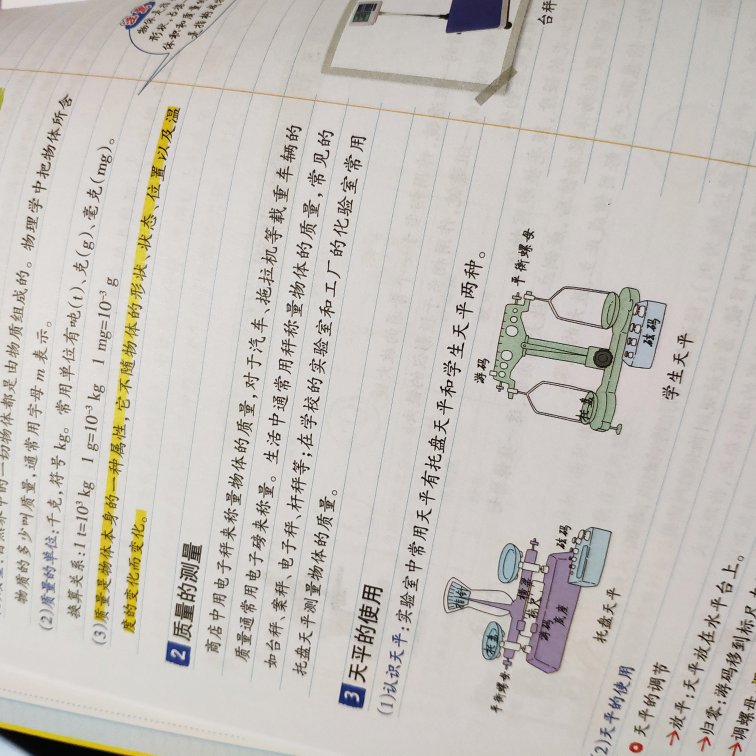 物质的多少叫质量,通常用字母 m 表示。
的一切物体都是由物质组成的。物理学中把物体所含
(2)质量的单位:千克,符号 kg。常用单位有吨(t)、克(g)、毫克(mg)。
换算关系:1 t=10³ kg 1 g=10⁻³ kg 1 mg=10⁻³ g
(3)质量是物体本身的一种属性,它不随物体的形状、状态、位置以及温
度的变化而变化。
2 质量的测量
商店中用电子秤来称量物体的质量,对于汽车、拖拉机等载重车辆的
质量通常用电子磅来称量。生活中通常用秤称量物体的质量,常见的
如台秤、案秤、电子秤、杆秤等;在学校的实验室和工厂的化验室常用
托盘天平测量物体的质量。
台秤
3 天平的使用
(1)认识天平:实验室中常用天平有托盘天平和学生天平两种。
指针
托盘
平衡螺母
横梁
标尺
游码
底座
砝码
托盘天平
游码
平衡螺母
托盘
砝码
学生天平
(2)天平的使用
天平的调节
→放平:天平放在水平台上。
→归零:游码移到标